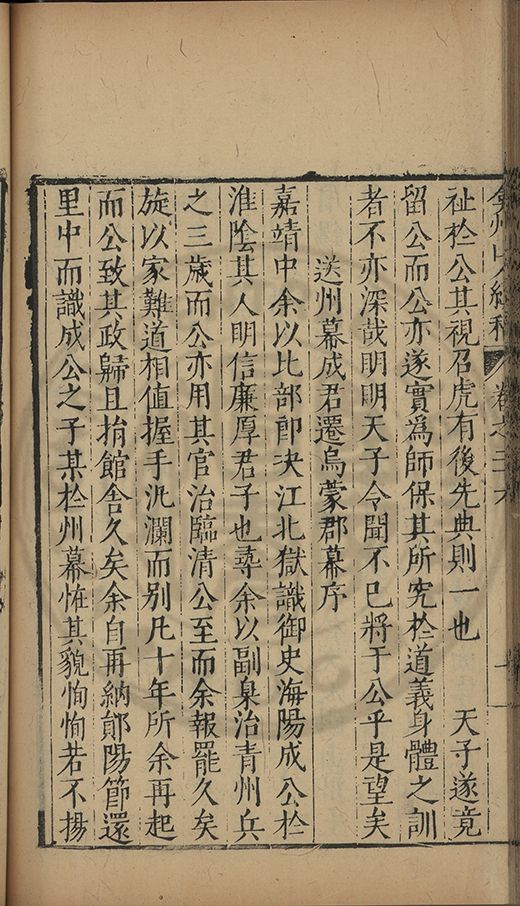 弇州山人續稿 卷之三十六
祉於公其視召虎有後先典則一也　天子遂竟
留公而公亦遂實爲師保其所究於道義身體之訓
者不亦深哉明明天子令聞不已將于公乎是望矣
送州幕成君遷烏蒙郡幕序
嘉靖中余以比部郎決江北獄識御史海陽成公於
淮陰其人明信廉厚君子也尋余以副臬治青州兵
之三歲而公亦用其官治臨清公至而余報罷久矣
旋以家難道相值握手汍瀾而別凡十年所余再起
而公致其政歸且捐館舍久矣余自再納鄖陽節還
里中而識成公之子某於州幕恠其貌恂恂若不揚